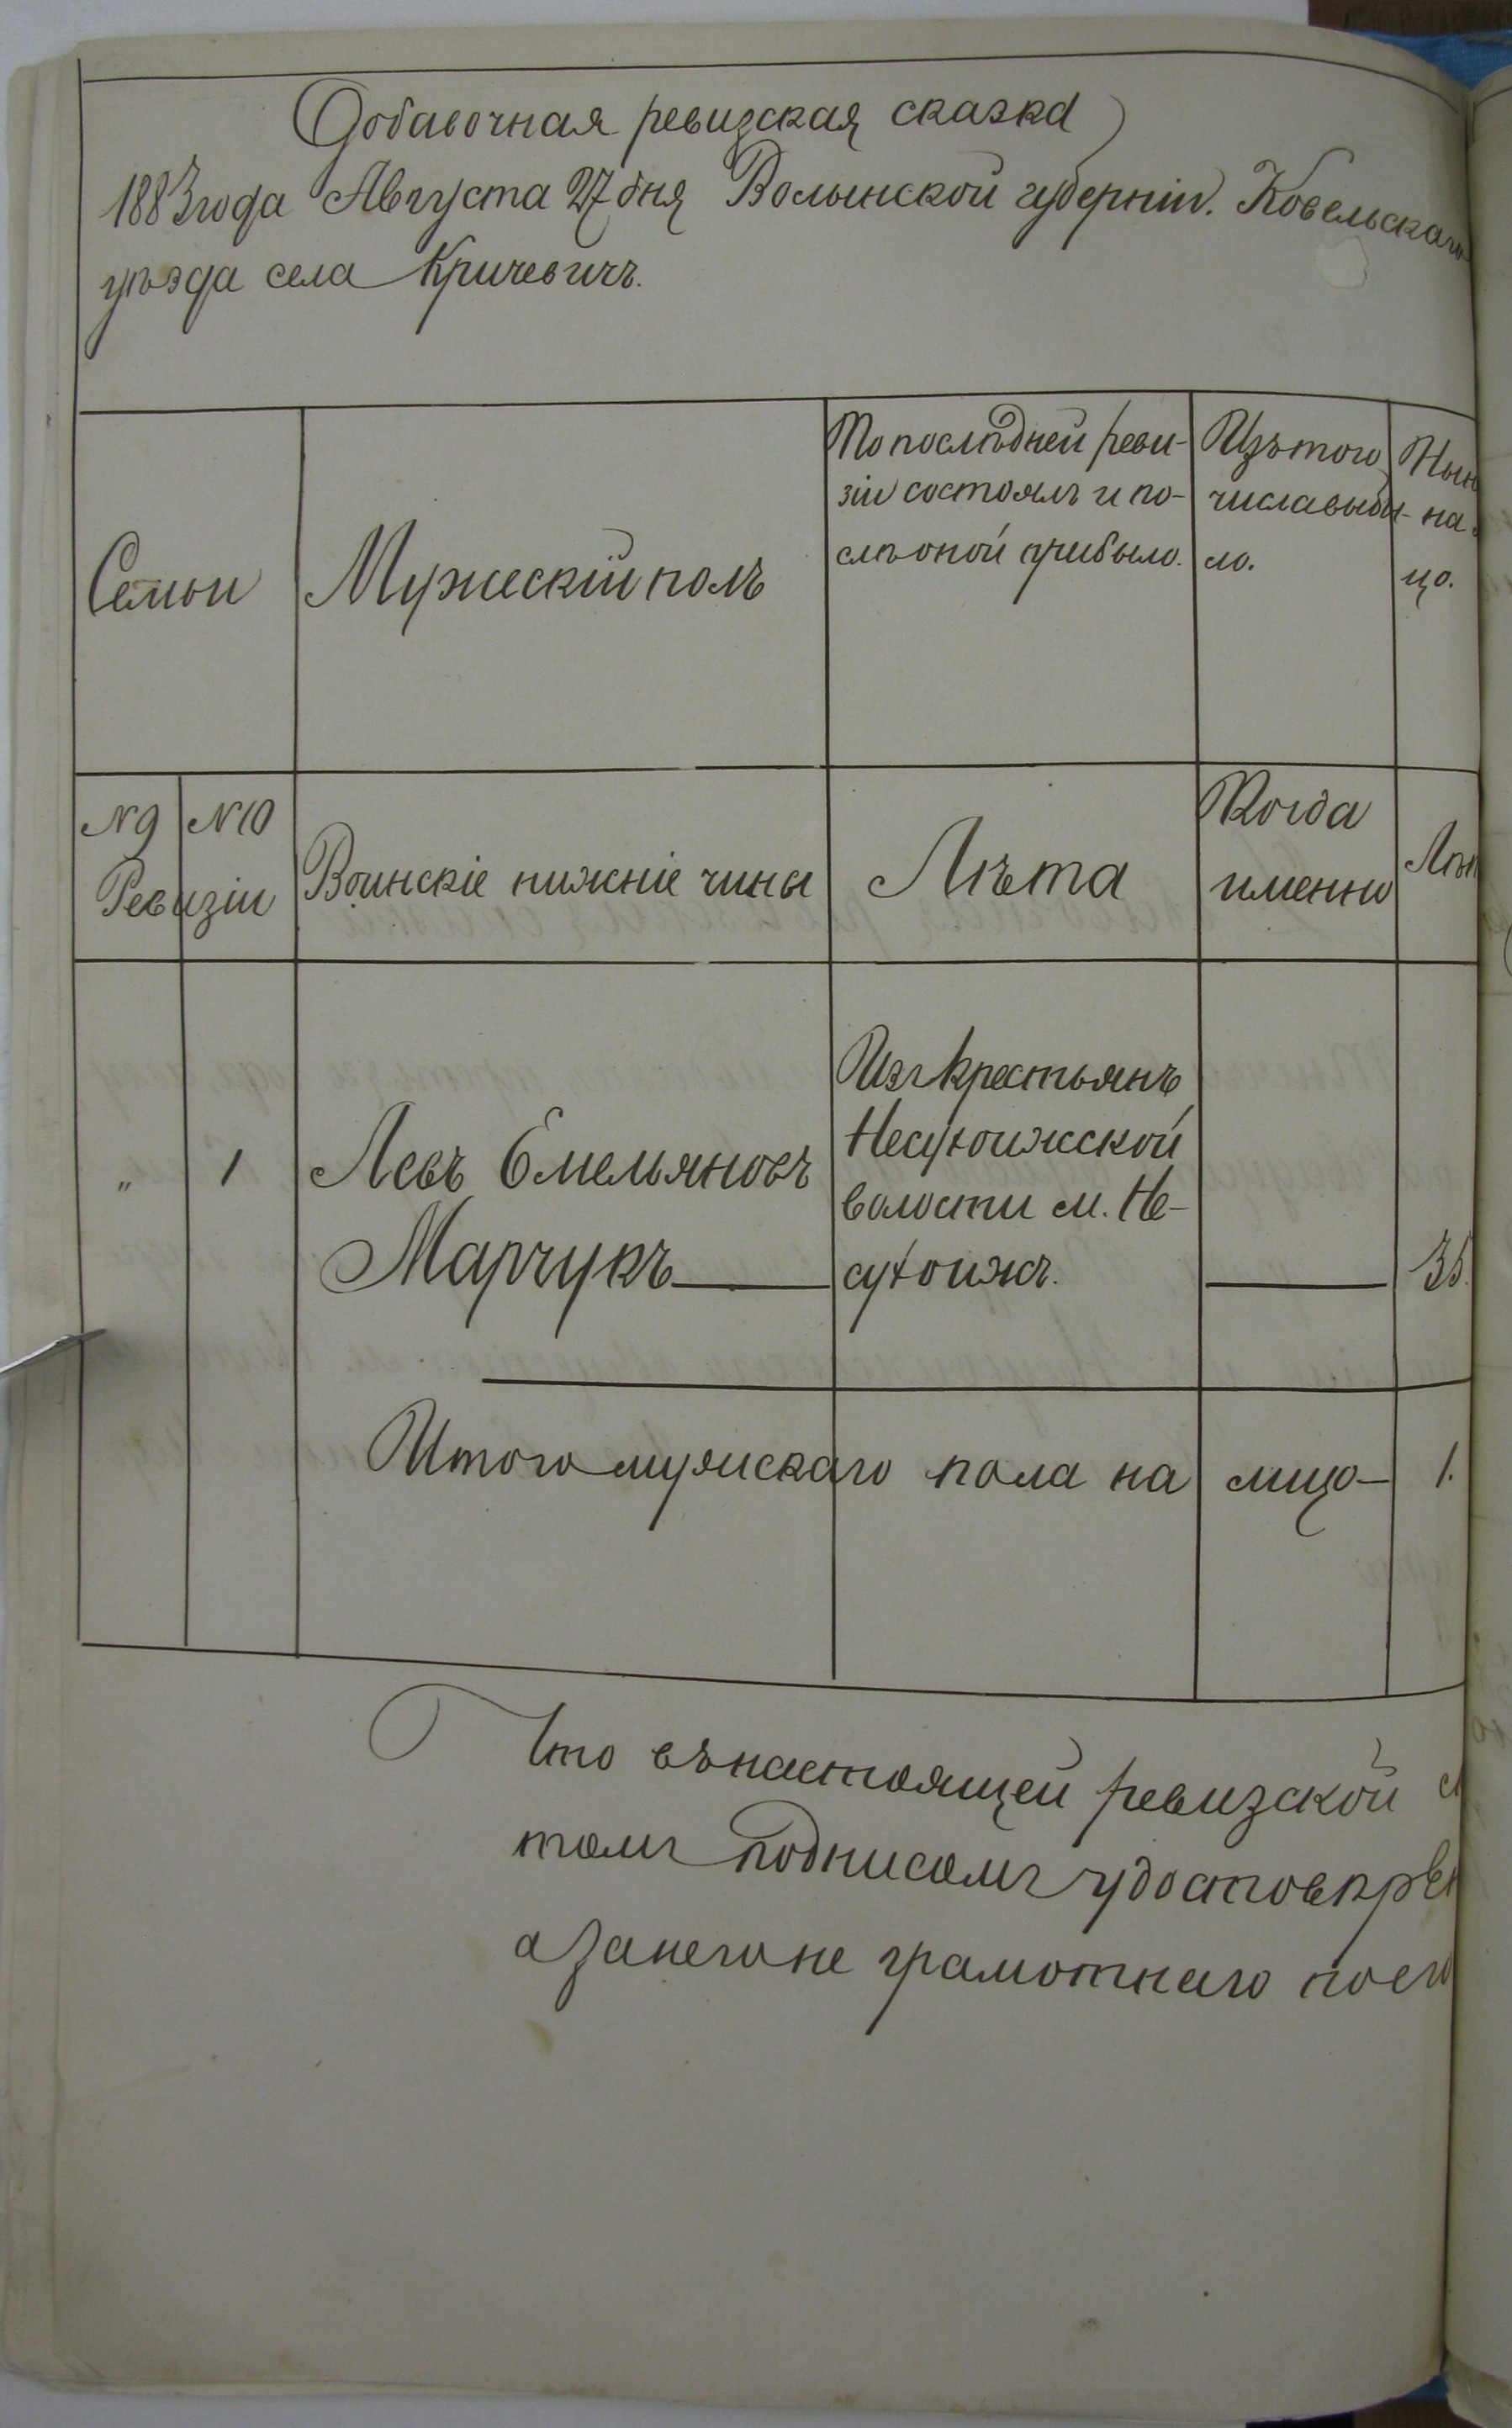 Добавочная ревизская сказка
1883 года Августа 27 дня Волынской губерніи. Ковельскаго
уѣзда села Кричевичъ.
Семьи
Мужескій полъ
По послѣдней реви-
зіи состоялъ и по-
слѣ оной прибыло.
Изъ того
числа выбы-
ло.
Нын
на
цо.
N 9
N 10
Ревизіи
Воинскіе нижніе чины
Лѣта
Когда
именно
Лѣт
"
1
Левъ Емельяновъ
Марчукъ
Изъ крестьянъ
Несухоижской
волости м. Не-
сухоижъ.
35.
Итого мужескаго пола на лицо 1.
Что въ настоящей ревизской
томъ подписомъ удостовѣрен
а за него не грамотнаго по его